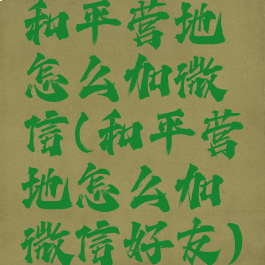 和平营地
怎么加微
信(和平营
地怎么加
微信好友)